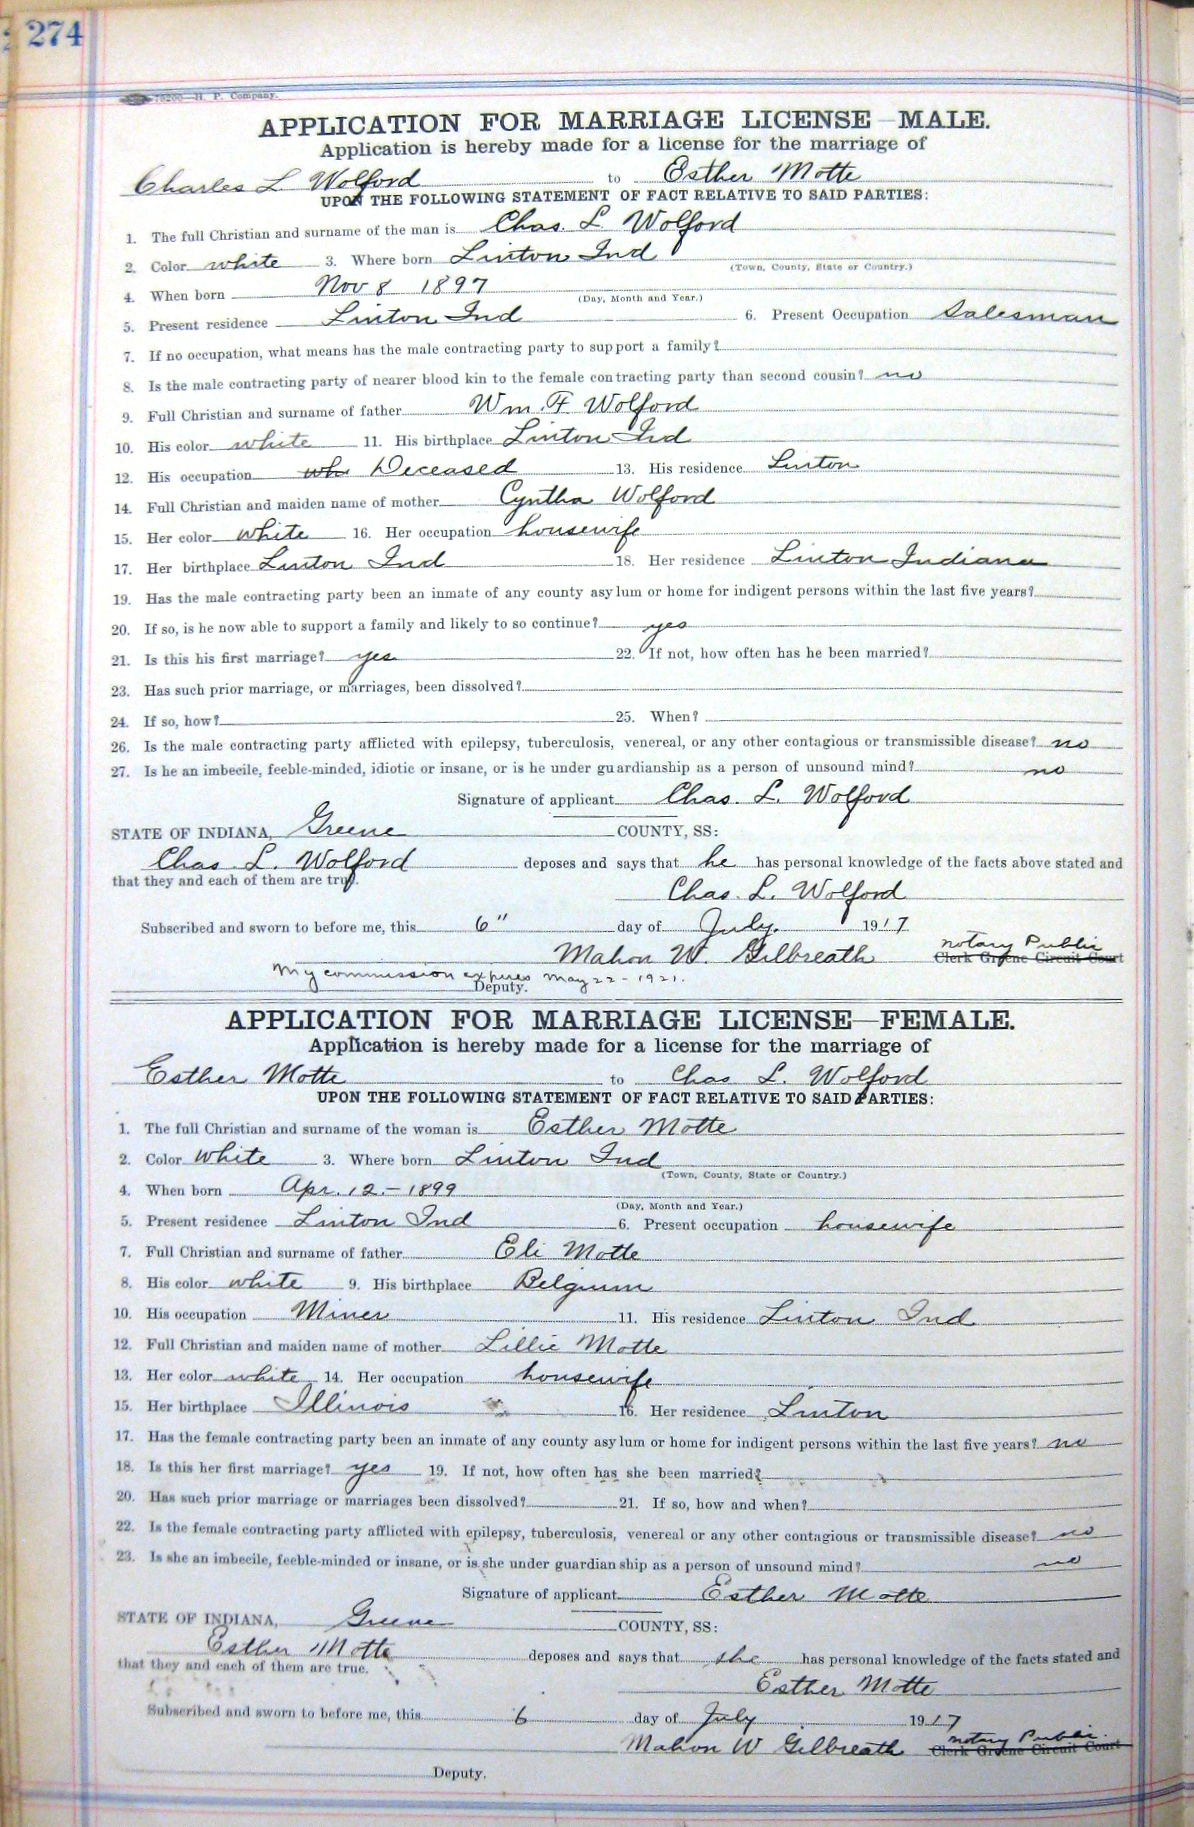 274
78200—H. P. Company.
APPLICATION FOR MARRIAGE LICENSE—MALE.
Application is hereby made for a license for the marriage of
Charles L Wolford to Esther Motte
UPON THE FOLLOWING STATEMENT OF FACT RELATIVE TO SAID PARTIES:
1. The full Christian and surname of the man is Chas. L Wolford
2. Color white 3. Where born Linton Ind
(Town, County, State or Country.)
4. When born Nov 8 1897
(Day, Month and Year.)
5. Present residence Linton Ind 6. Present Occupation Salesman
7. If no occupation, what means has the male contracting party to support a family?
8. Is the male contracting party of nearer blood kin to the female contracting party than second cousin? no
9. Full Christian and surname of father Wm. F Wolford
10. His color white 11. His birthplace Linton Ind
12. His occupation whi Deceased 13. His residence Linton
14. Full Christian and maiden name of mother Cyntha Wolford
15. Her color white 16. Her occupation housewife
17. Her birthplace Linton Ind 18. Her residence Linton Indiana
19. Has the male contracting party been an inmate of any county asylum or home for indigent persons within the last five years?
20. If so, is he now able to support a family and likely to so continue? yes
21. Is this his first marriage? yes 22. If not, how often has he been married?
23. Has such prior marriage, or marriages, been dissolved?
24. If so, how? 25. When?
26. Is the male contracting party afflicted with epilepsy, tuberculosis, venereal, or any other contagious or transmissible disease? no
27. Is he an imbecile, feeble-minded, idiotic or insane, or is he under guardianship as a person of unsound mind? no
Signature of applicant Chas. L. Wolford
STATE OF INDIANA, Greene COUNTY, SS:
Chas. L. Wolford deposes and says that he has personal knowledge of the facts above stated and
that they and each of them are true.
Chas. L. Wolford
Subscribed and sworn to before me, this 6" day of July. 1917
Mahon W. Gilbreath notary Public
Clerk Greene Circuit Court
My commission expires May 22 - 1921.
Deputy.
APPLICATION FOR MARRIAGE LICENSE—FEMALE.
Application is hereby made for a license for the marriage of
Esther Motte to Chas L. Wolford
UPON THE FOLLOWING STATEMENT OF FACT RELATIVE TO SAID PARTIES:
1. The full Christian and surname of the woman is Esther Motte
2. Color White 3. Where born Linton Ind
(Town, County, State or Country.)
4. When born Apr. 12. - 1899
(Day, Month and Year.)
5. Present residence Linton Ind 6. Present occupation housewife
7. Full Christian and surname of father Eli Motte
8. His color white 9. His birthplace Belgium
10. His occupation Miner 11. His residence Linton Ind
12. Full Christian and maiden name of mother Lillie Motte
13. Her color white 14. Her occupation housewife
15. Her birthplace Illinois 16. Her residence Linton
17. Has the female contracting party been an inmate of any county asylum or home for indigent persons within the last five years? no
18. Is this her first marriage? yes 19. If not, how often has she been married?
20. Has such prior marriage or marriages been dissolved? 21. If so, how and when?
22. Is the female contracting party afflicted with epilepsy, tuberculosis, venereal or any other contagious or transmissible disease? no
23. Is she an imbecile, feeble-minded or insane, or is she under guardianship as a person of unsound mind? no
Signature of applicant Esther Motte
STATE OF INDIANA, Greene COUNTY, SS:
Esther Motte deposes and says that she has personal knowledge of the facts stated and
that they and each of them are true.
Esther Motte
Subscribed and sworn to before me, this 6 day of July 1917
Mahon W Gilbreath notary Public.
Clerk Greene Circuit Court
Deputy.